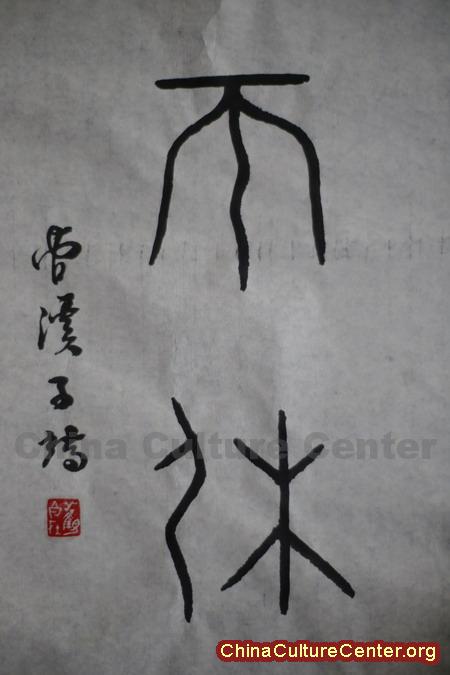 不休
曹溪子
China Culture Center
ChinaCultureCenter.org